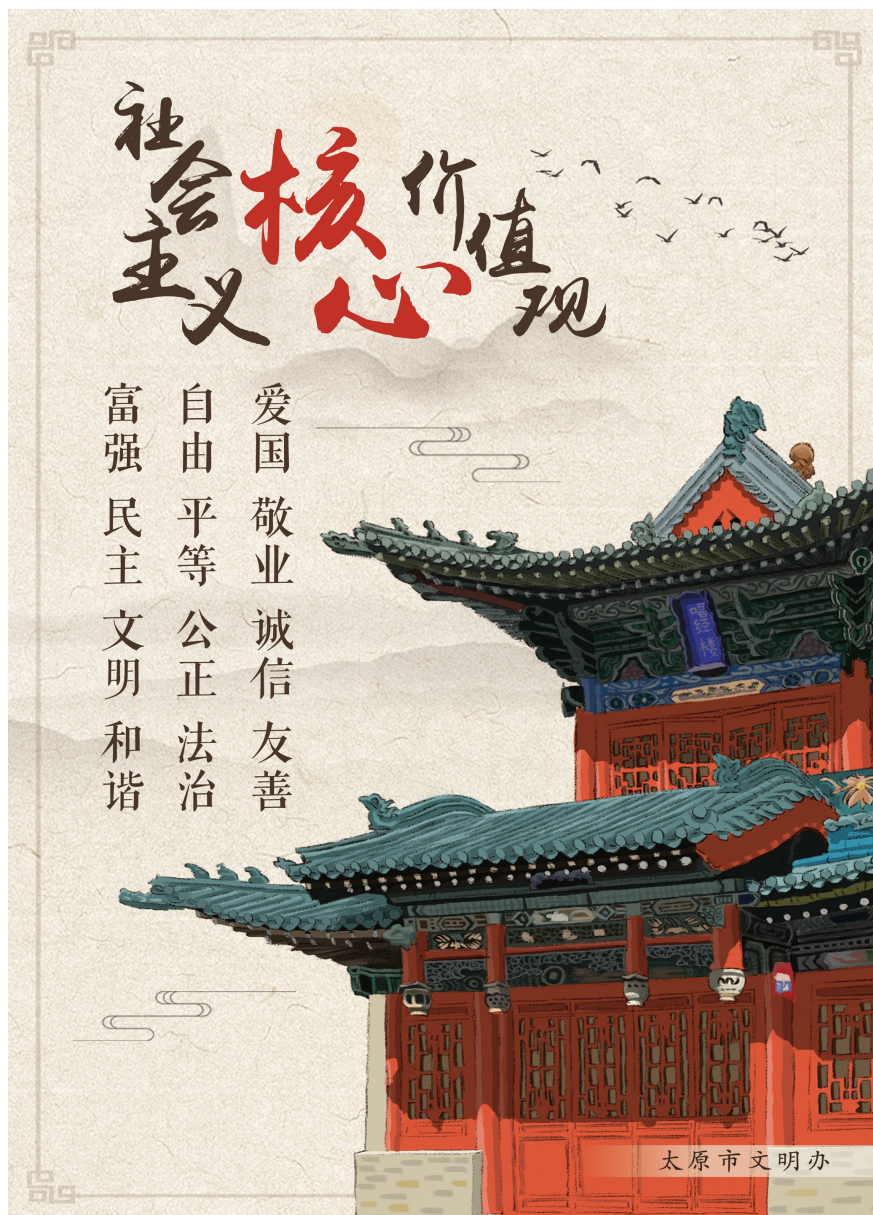 社会主义核心价值观
富强 民主 文明 和谐
自由 平等 公正 法治
爱国 敬业 诚信 友善
唱经楼
太原市文明办